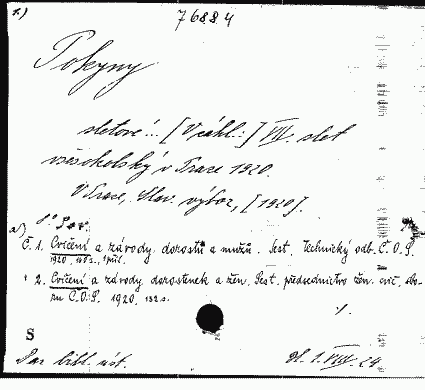 1.)
7688.4
Pokyny
sletové... [V záhl.:] VII. slet
všesokolský v Praze 1920.
V Praze, Slav. výbor, [1920].
a)
Č. 1. Cvičení a závody dorostu a mužů. Sest. Technický odb. Č.O.S.
1920, s., 1 příl.
2. Cvičení a závody dorostenek a žen. Sest. předsednictvo žen. cvič. sbo-
ru Č.O.S. 1920, 132 s.
S
bibl. úst.